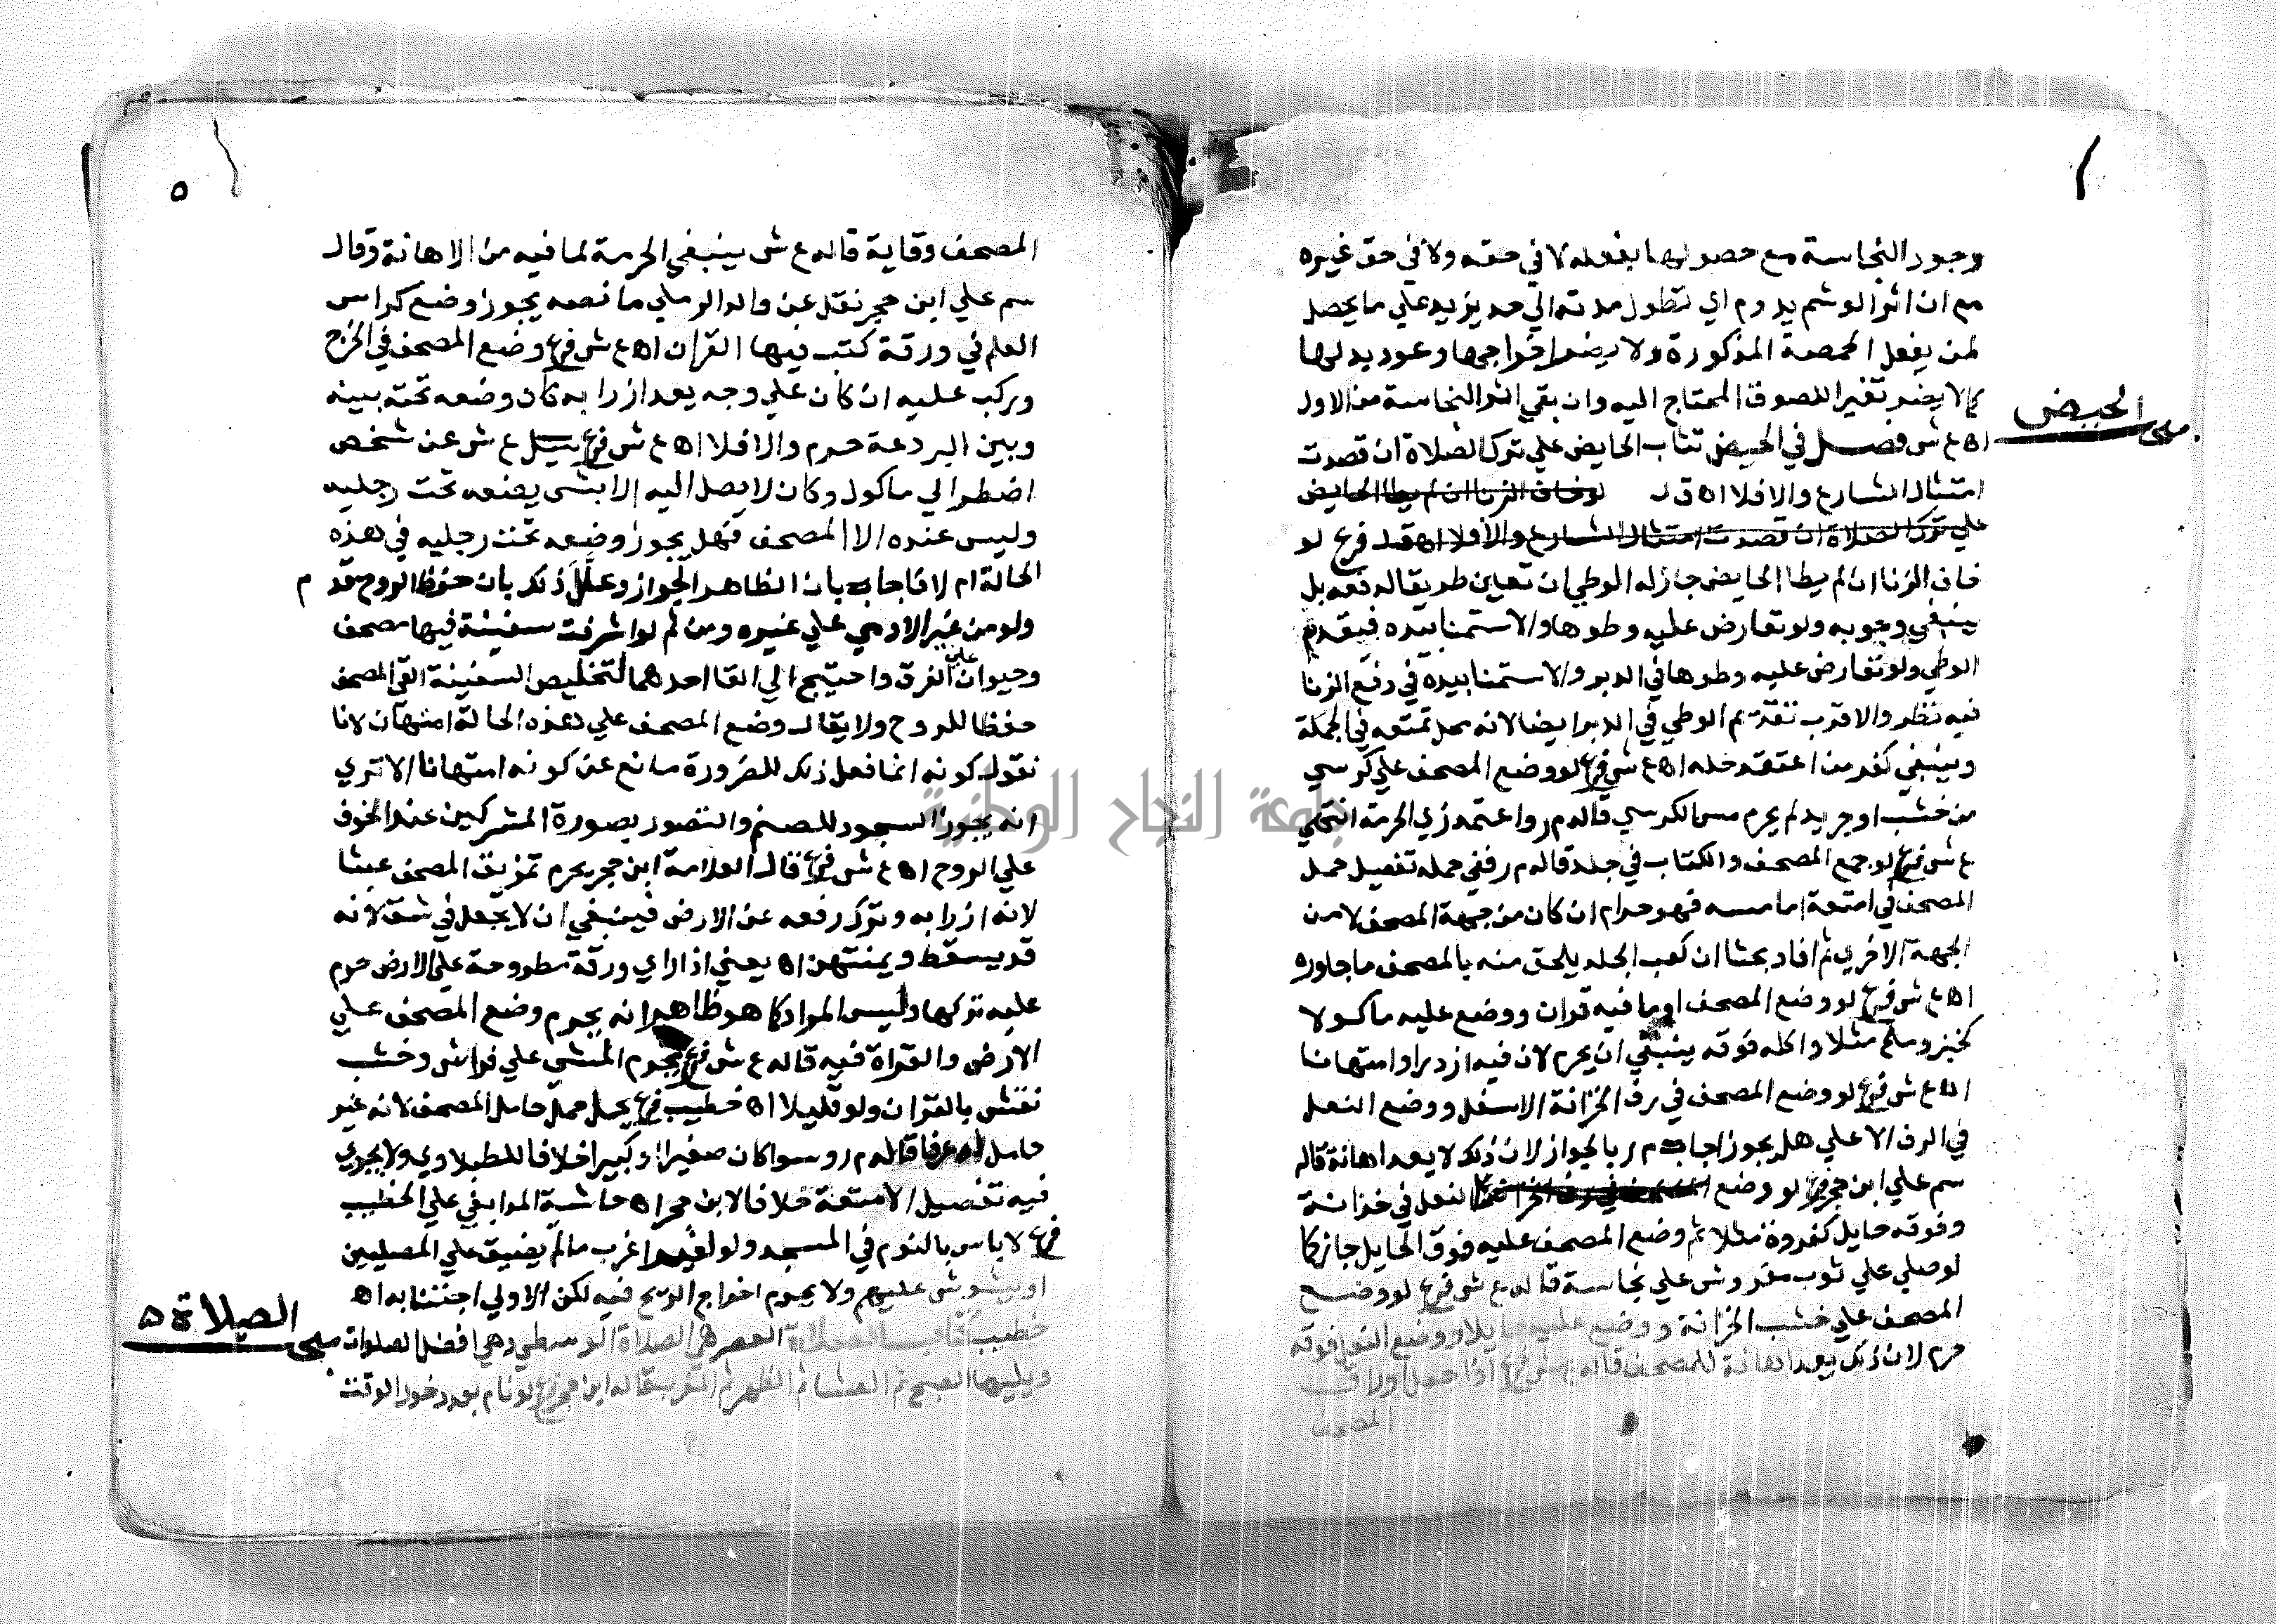 وجود النجاسة مع حصولها بفعله لا في حقه ولا في حق غيره
مع ان اثر الوشم يدوم اي تطول مدته الي حد يزيد علي ما يحصل
لمن يفعل الحمصة المذكورة ولا يضر اخراجها وعود بدلها
كما لا يضر تغير اللصوق المحتاج اليه وان بقي اثر النجاسة من الاول
الحيض
اه ع ش فصل في الحيض تثاب الحايض علي ترك الصلاة ان قصدت
امتثال الشارع والافلا اه ق ل لو خاف الزنا ان لم يطا الحايض
علي ترك الصلاة ان قصدت امتثال الشارع والافلا اه ق ل فرع لو
خاف الزنا ان لم يطا الحايض جاز له الوطي ان تعين طريقا لدفعه بل
ينبغي وجوبه ولو تعارض عليه وطوها والاستمنا بيده فيقدم
الوطي ولو تعارض عليه وطوها في الدبر والاستمنا بيده في دفع الزنا
فيه نظر والاقرب تقديم الوطي في الدبر ايضا لانه محل تمتعه في الجملة
وينبغي كفر من اعتقد حله اه ع ش فرع لو وضع المصحف علي كرسي
من خشب او جريد لم يحرم مس الكرسي قاله م ر واعتمد زي الحرمة انتهي
ع ش فرع لو جمع المصحف والكتاب في جلد قاله م ر ففي حمله تفصيل حمل
المصحف في امتعة اما مسه فهو حرام ان كان من جهة المصحف لا من
الجهة الاخري ثم افاد بحثا ان كعب الجلد يلحق منه بالمصحف ما جاوره
اه ع ش فرع لو وضع المصحف او ما فيه قران ووضع عليه ماكولا
كخبز وملح مثلا واكله فوقه ينبغي ان يحرم لان فيه ازدرا وامتهانا
اه ع ش فرع لو وضع المصحف في رف الخزانة الاسفل ووضع النعل
في الرف الاعلي هل يجوز اجاب م ر بالجواز لان ذلك لا يعد اهانة قاله
سم علي ابن حجر فرع لو وضع المصحف في رف الخزانة النعل في خزانة
وفوقه حايل كفروة مثلا ثم وضع المصحف عليه فوق الحايل جاز كما
لو صلي علي ثوب مفروش علي نجاسة قاله ع ش فرع لو وضع
المصحف علي خشب الخزانة ووضع عليه حايلا ووضع النعل فوقه
حرم لان ذلك يعد اهانة للمصحف قاله ع ش فرع اذا جعل اوراق
المصحف
٥
المصحف وقاية قاله ع ش ينبغي الحرمة لما فيه من الاهانة وقال
سم علي ابن حجر نقل عن والد الرملي ما نصه يجوز وضع كراس
العلم في ورقة كتب فيها القران اه ع ش فرع وضع المصحف في الخرج
وركب عليه ان كان علي وجه يعد ازرا به كان وضعه تحته بينه
وبين البردعة حرم والافلا اه ع ش فرع سيل ع ش عن شخص
اضطر الي ماكول وكان لا يصل اليه الا بشي يضعه تحت رجليه
وليس عنده الا المصحف فهل يجوز وضعه تحت رجليه في هذه
الحالة ام لا فاجاب بان الظاهر الجواز وعلل ذلك بان حفظ الروح مقدم
ولو من غير الادمي علي غيره ومن ثم لو اشرفت سفينة فيها مصحف
وحيوان علي الغرق واحتيج الي القا احدهما لتخليص السفينة القي المصحف
حفظا للروح ولا يقال وضع المصحف علي هذه الحالة امتهان لانا
نقول كونه انما فعل ذلك للضرورة مانع عن كونه امتهانا الا تري
انه يجوز السجود للصنم والتصور بصورة المشركين عند الخوف
علي الروح اه ع ش فرع قال العلامة ابن حجر يحرم تمزيق المصحف عبثا
لانه ازرا به وترك رفعه عن الارض فينبغي ان لا يجعل في شق لانه
قد يسقط ويمتهن اه يعني اذا راي ورقة مطروحة علي الارض حرم
عليه تركها وليس المراد كما هو ظاهر انه يحرم وضع المصحف علي
الارض والقراة فيه قاله ع ش فرع يحرم المشي علي فراش وخشب
نقش بالقران ولو قليلا اه خطيب فرع يحل حمل حامل المصحف لانه غير
حامل له عرفا قاله م ر وسوا كان صغيرا وكبيرا خلافا للطبلاوي ولا يجري
فيه تفصيل الامتعة خلافا لابن حجر اه حاشية المدابغي علي الخطيب
فرع لا باس بالنوم في المسجد ولو لغير اعزب ما لم يضيق علي المصليين
او يشوش عليهم ولا يحرم اخراج الريح فيه لكن الاولي اجتنابه اه
الصلاة
خطيب كتاب الصلاة العصر هي الصلاة الوسطي وهي افضل الصلوات
ويليها الصبح ثم العشا ثم الظهر ثم المغرب قاله ابن حجر فرع لو نام بعد دخول الوقت
جامعة النجاح الوطنية